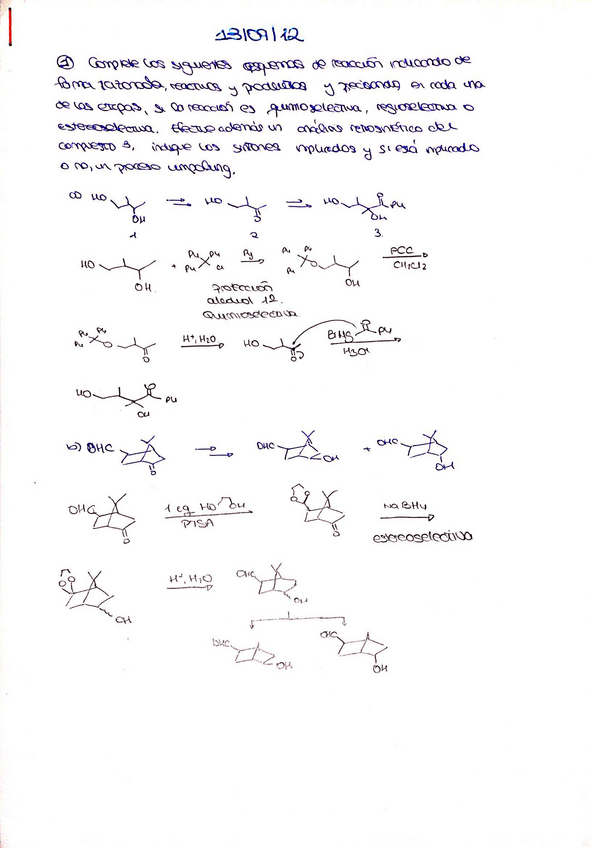 13/09/12
① Complete los siguientes esquemas de reacción indicando de
forma razonada, reactivos y productos y precisando, en cada una
de las etapas, si la reacción es quimioselectiva, regioselectiva o
estereoselectiva. Efectue además un análisis retrosintético del
compuesto 3, indique los sintones implicados y si está implicado
o no, un proceso umpolung.
a) HO OH HO O HO O Ph OH
1 2 3
HO OH + Ph Ph Ph Cl Py Ph Ph Ph O OH PCC CH2Cl2
Protección
alcohol 1º.
Quimioselectiva
Ph Ph Ph O O H+, H2O HO O O Ph
H3O+
HO O Ph OH
b) OHC O OHC OH + OHC OH
OHC O 1 eq HO OH PTSA O O O NaBH4
estereoselectiva
O O OH H+, H2O OHC OH
OHC OH OHC OH